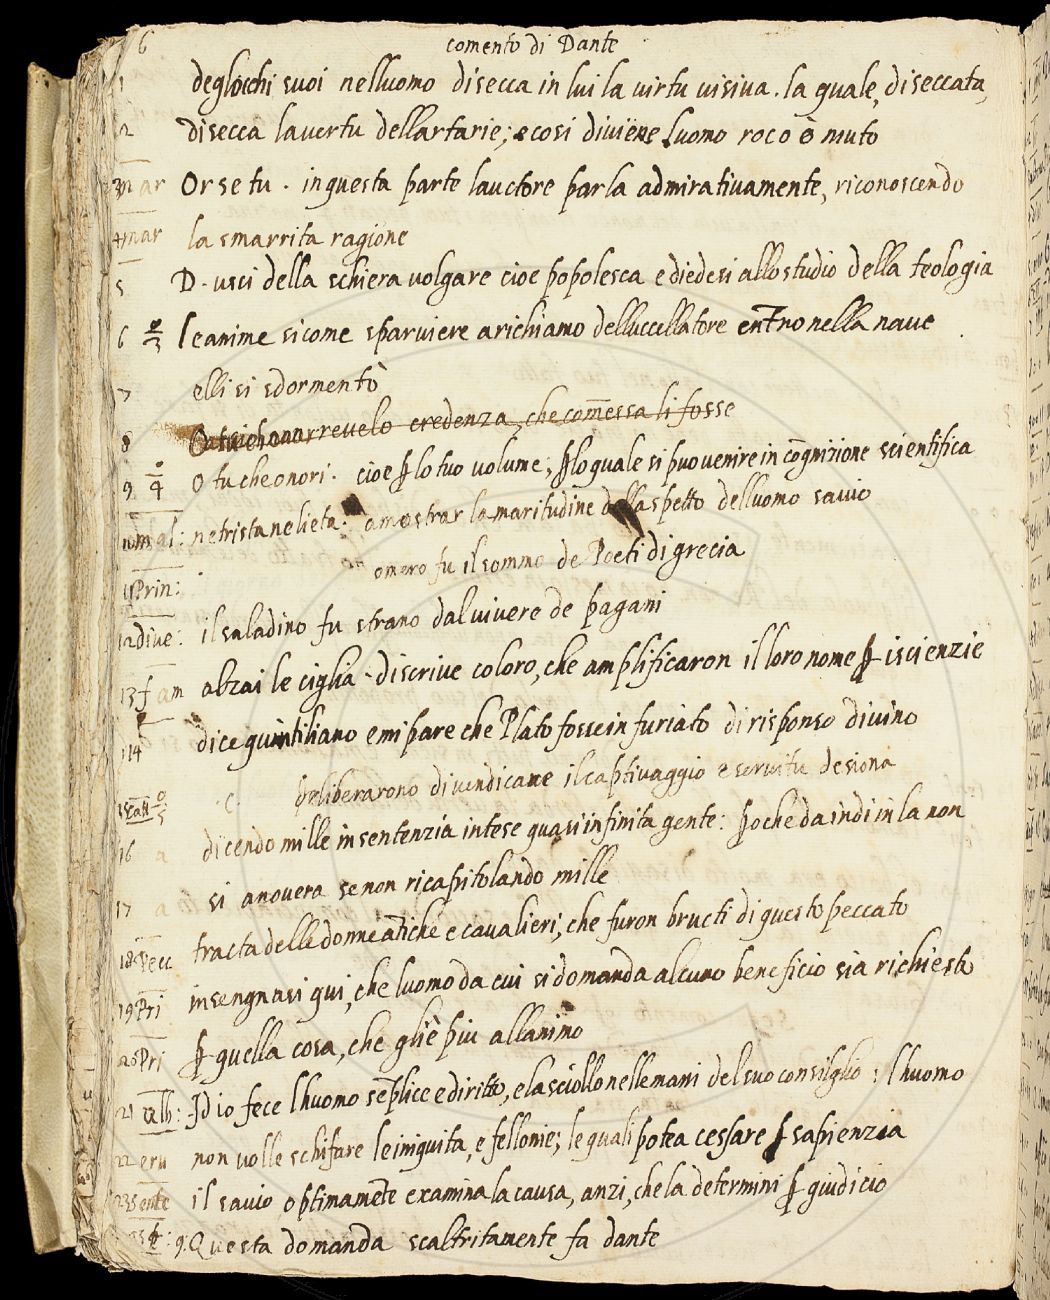 6 comento di Dante
1 deglocchi suoi nelluomo disecca in lui la uirtu uisiua. la quale, diseccata,
2 disecca lauertu dellartarie; ecosi diuiene luomo roco o muto
3 mar Or se tu. in questa parte lauctore parla admiratiuamente, riconoscendo
4 mar la smarrita ragione
5 D. usci della schiera uolgare cioe popolesca e diedesi allo studio della teologia
6 leanime sicome sparuiere a richiamo delluccellatore entrono nella naue
7 elli si sdormentò
8 credenza, che com̄essa li fosse
9 O tu che onori. cioe ꝑ lo tuo uolume; ꝑ lo quale si puo uenire in cōgnizione scientifica
10 mal: ne trista ne lieta. amostrar la maritudine dellaspetto delluomo sauio
11 Prin: omero fu il sommo de Poeti di grecia
12 diue: il saladino fu strano dal uiuere de pagani
13 fam alzai le ciglia. discriue coloro, che amplificaron il loro nome ꝑ iscienzie
14 dice quintiliano e mi pare che Plato fosse in furiato di risponso diuino
15 C. diliberarono di uendicare il captiuaggio e seruitu desiona
16 a dicendo mille in sentenzia intese quasi infinita gente: ꝑo che da indi in la non
17 a si anouera se non ricapitolando mille
18 Vecc tracta delle donne ātiche e caualieri, che furon bructi di questo peccato
19 Pri insengnasi qui, che luomo da cui si domanda alcuno beneficio sia richiesto
20 Pri ꝑ quella cosa, che gliè piu allanimo
21 alb: Idio fece lhuomo sēplice e diritto, e lasciollo nelle mani del suo consilglio: lhuomo
22 eru non uolle schifare le iniquita, e fellonie; le quali potea cessare ꝑ sapienzia
23 il sauio optimamēte examina la causa, anzi, che la determini ꝑ giudicio
Questa domanda scaltritamente fa dante